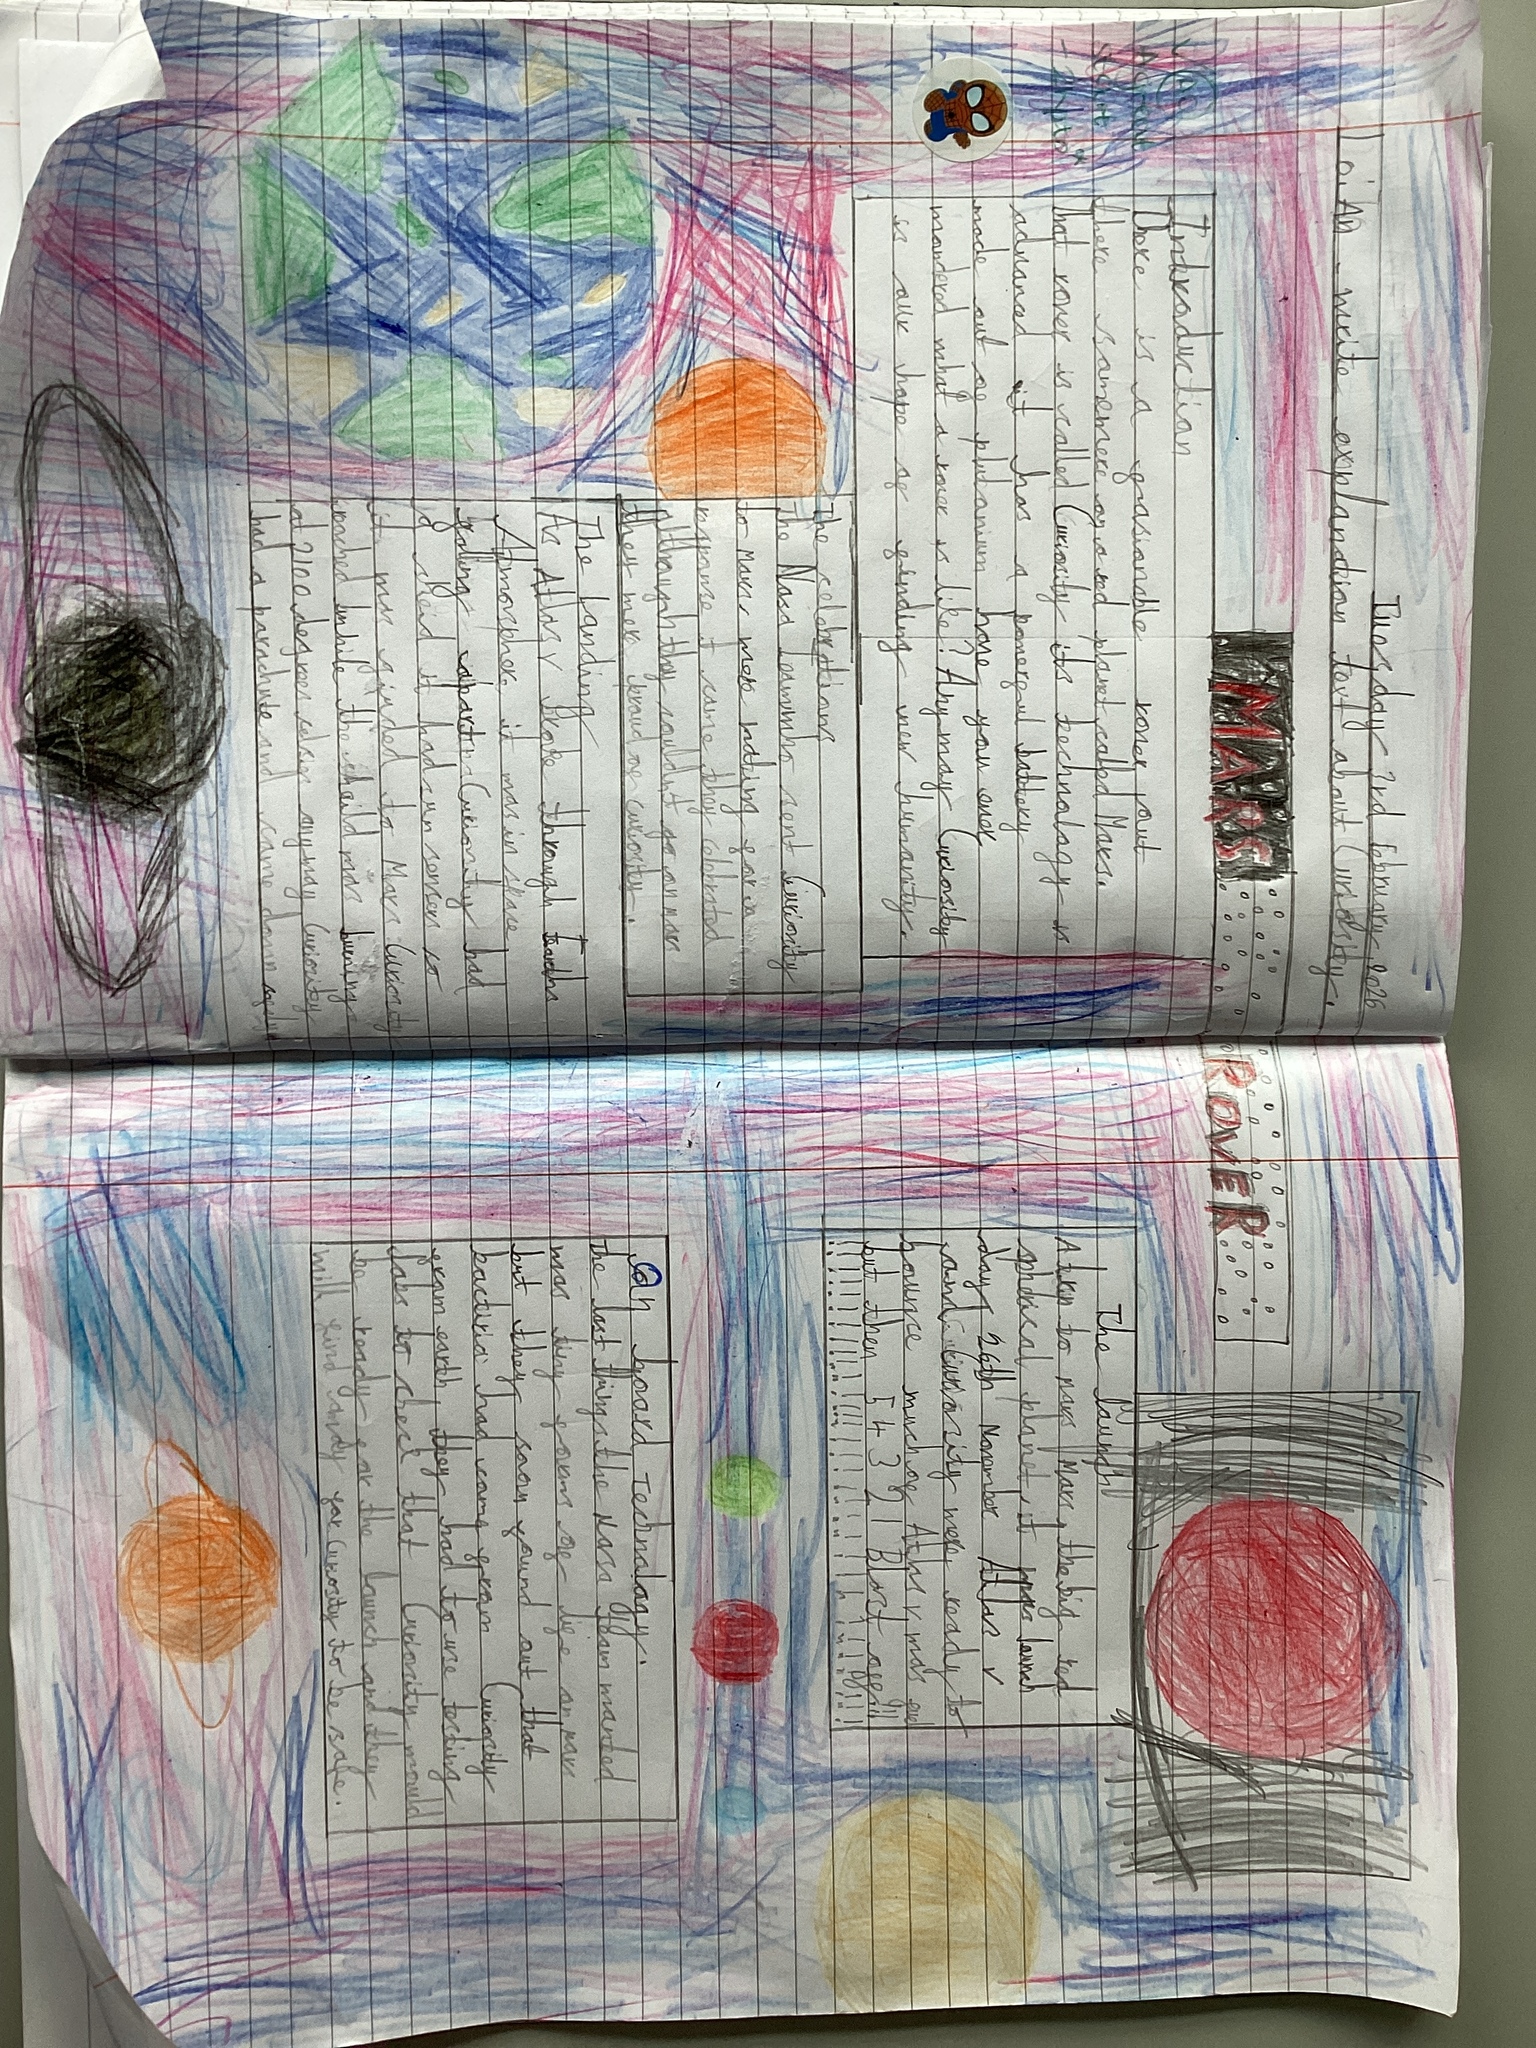 Tuesday 3rd February 2026
L.O: An write explanation text about Curiosity.
MARS
ROVER
Introduction
There is a fasionable rover out
there somewhere on a red planet called Mars.
that rover is called Curiosity its technology is
advanced it has a powerful battery
made out of plutanium have you ever
wondered what a rover is like? Anyway Curiosity
is our hope of finding new humanity.
The celebrations
The Nasa launch sent Curiosity
to Mars, were waiting for
response it came they celebrated
although they couldn't go on mars
they were proud of curiosity.
The landing
As Atlas V broke through
Atmosphere, it was in space
falling apart Curiosity had
a shed it had sun sensors so
it was guided to Mars Curiosity
reached while the shield was burning
at 2100 degrees celsius anyway Curiosity
had a parachute and came down safely
The launch
Atkn to mars Mars, the big red
spherical planet, it was launch
day 26th November Atlas V
and Curiosity were ready to
bounce much of Atlas V was fuel
but then 5 4 3 2 1 Blast off!!!
On board Technology.
The last things the Nasa team wanted
was tiny forms of life on mars
but they soon found out that
bacteria had come from Curiosity
from earth, they had to use testing
labs to check that Curiosity would
be ready for the launch and they
will find handy for Curiosity to be safe.